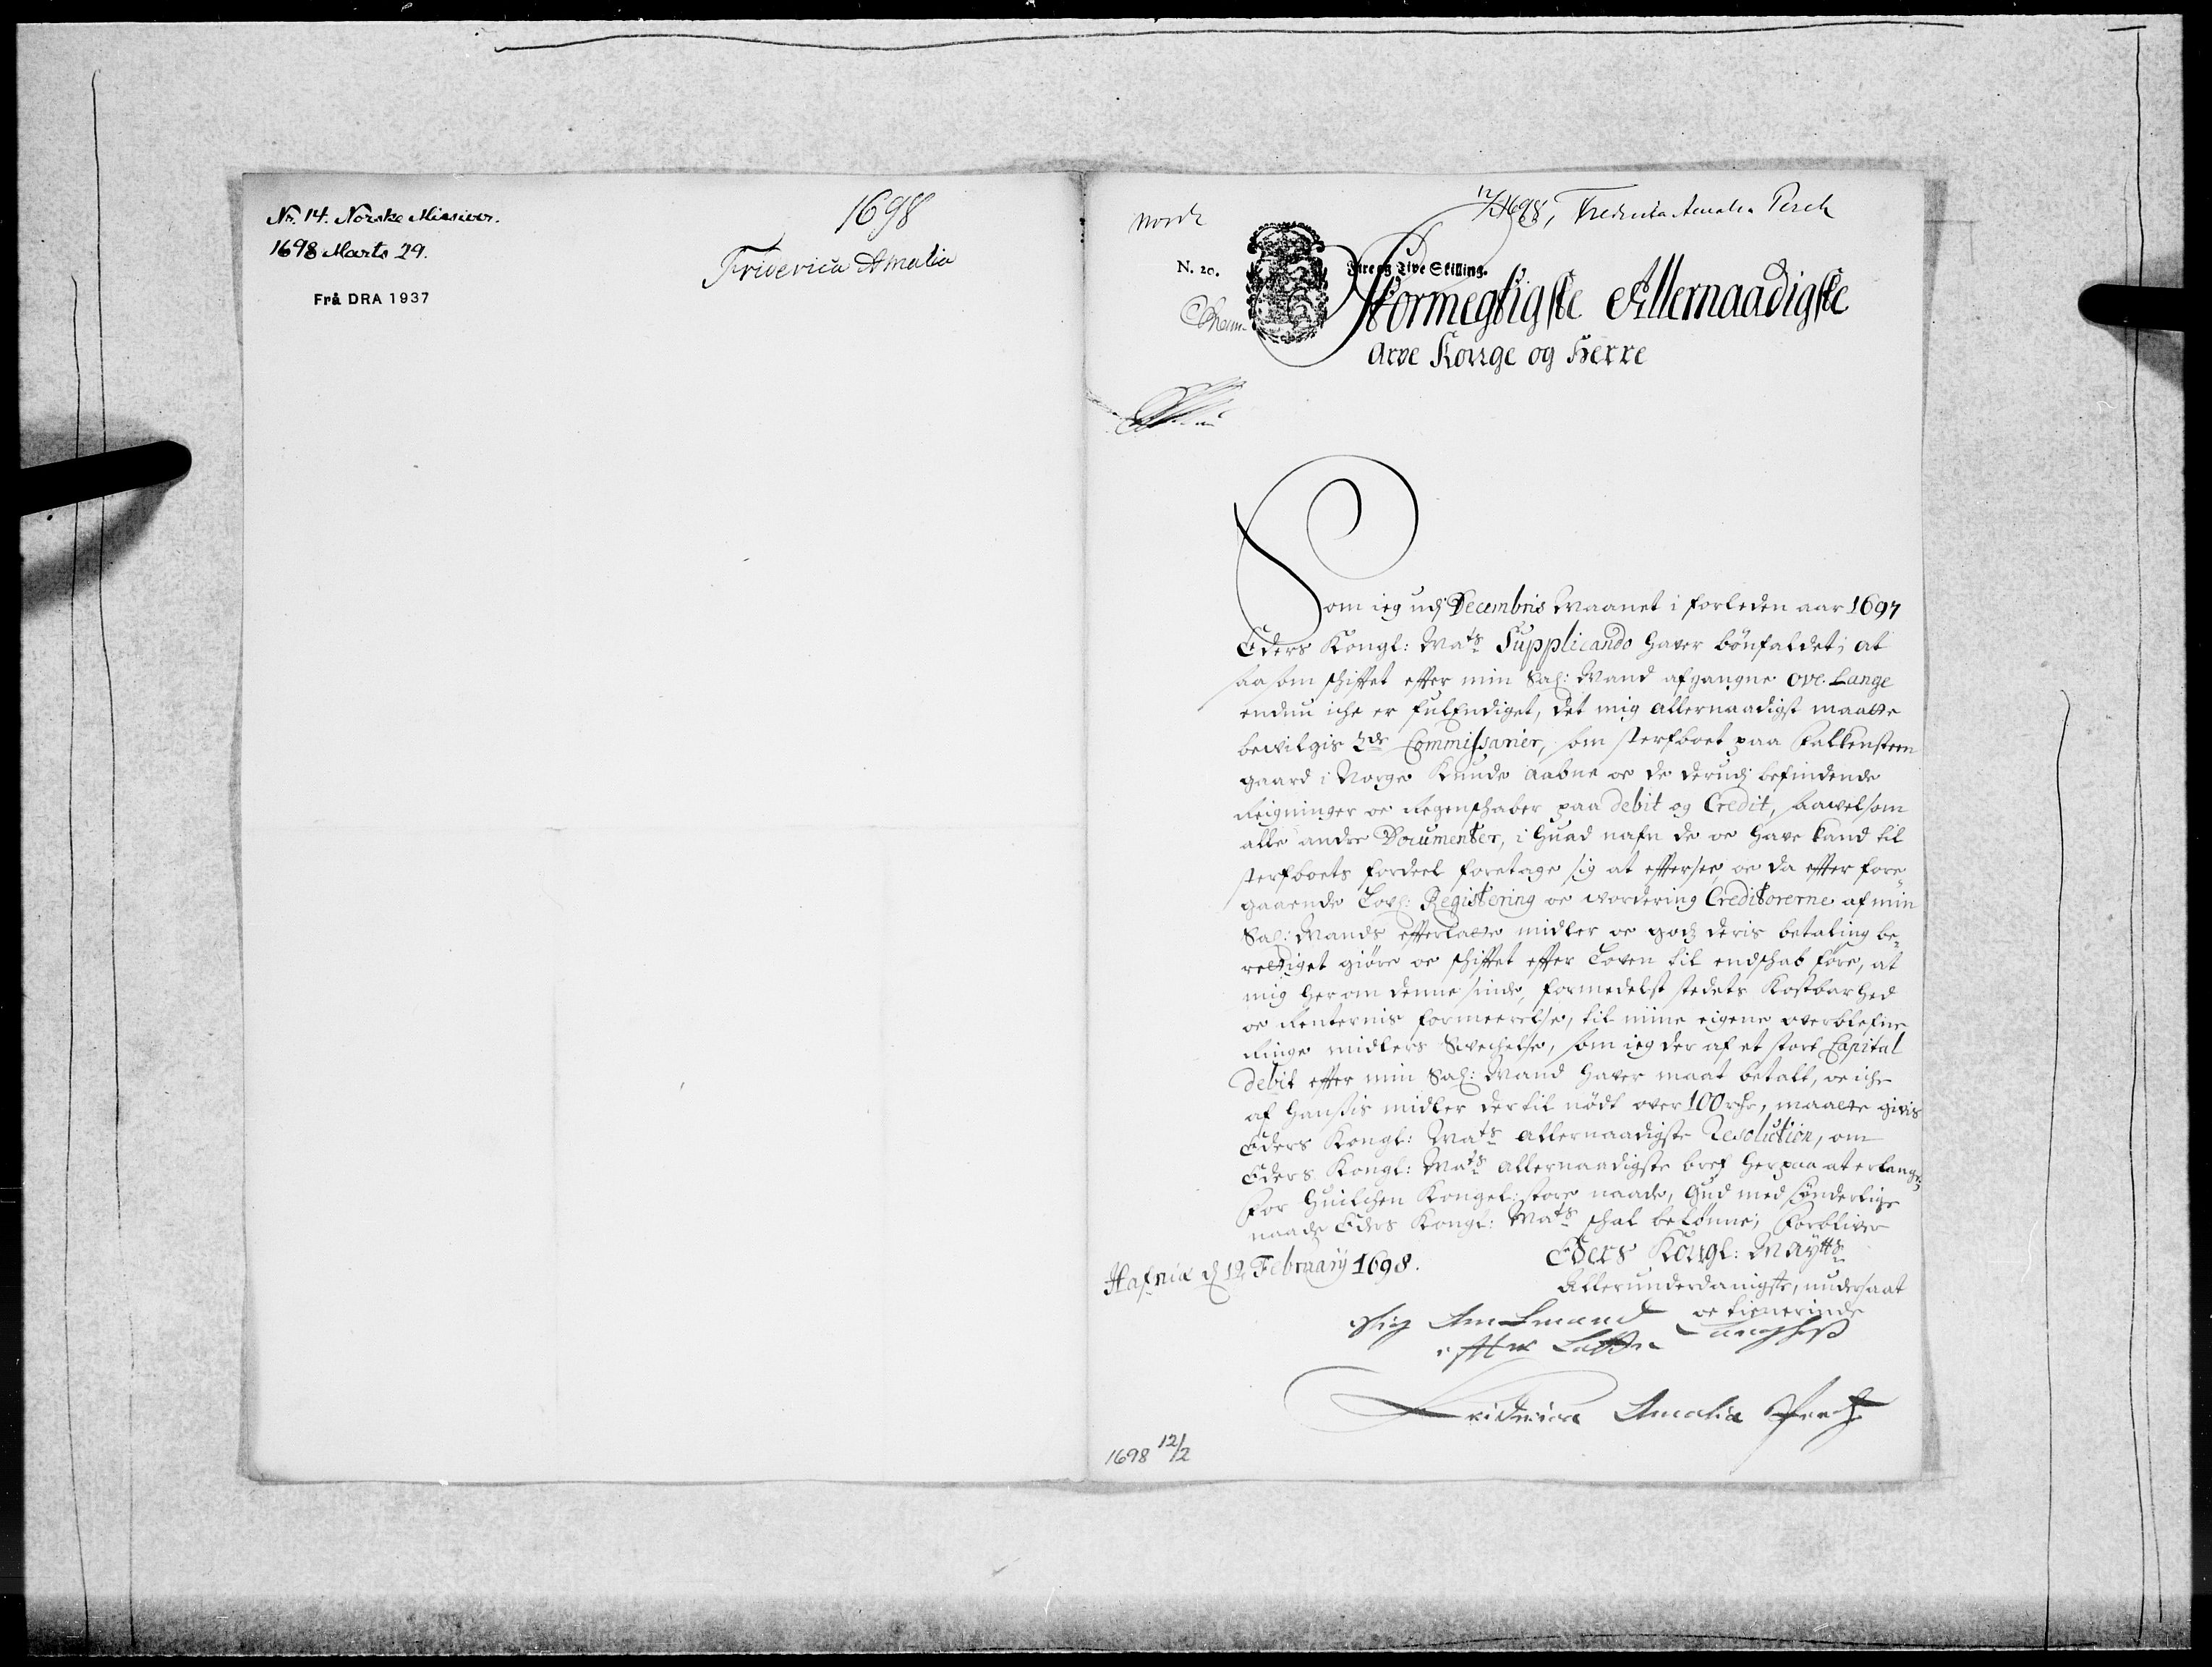 No. 14. Norske Missiver.
1698 Marts 29.
Frå DRA 1937
1698
Friderica Amalia
Norch
12/2 1698, Frederica Amalia Perch
N. 20.
Fire og Tive Skilling.
Stormegtigste Allernaadigste
Arve Konge og Herre
Som ieg udj Decembris Maanet i forleden aar 1697
Eders Kongl: Mats Supplicando haver bönfaldet; at
saasom schifftet effter min Sal: Mand afgangne Ove Lange
endnu iche er fulendiget, det mig allernaadigst maatte
bevilgis 2de Commissarier, som sterfboet paa Falkensteen
gaard i Norge kunde aabne oc de derudj befindende
Reigninger oc Regenschaber paa debit og Credit, saavelsom
alle andre Documenter, i huad nafn de oc have kand til
sterfboets fordeel foretage sig at effterse, oc da effter fore-
gaaende Lovl: Registering oc vordering Creditorerne af min
Sal: Mands effterlatte midler oc godz deris betaling be-
rettiget giöre oc schifftet effter Loven til endschab före, at
mig her om denne sinde, formedelst stedets Kostbarhed
oc Renternis formeerelse, til mine eigene overblefne
Ringe midlers Svechelse, som ieg der af et stort Capital
debit effter min Sal: Mand haver maat betalt, oc iche
af hanssis midler dertil nödt over 100 rdr, maatte givis
Eders Kongl: Mats allernaadigste Resolution, om
Eders Kongl: Mats allernaadigste bref herpaa at erlange;
For huilchen Kongel: store naade, Gud med sönderlige
naade Eders Kongl: Mats schal belönne; Forbliver
Eders Kongl: Mayts
Hafniæ d 12 February 1698.
Allerunderdanigste, undersaat
oc tienerinde
Sig Amtmand
effter Latte
Friderica Amalia Perch
1698 12/2